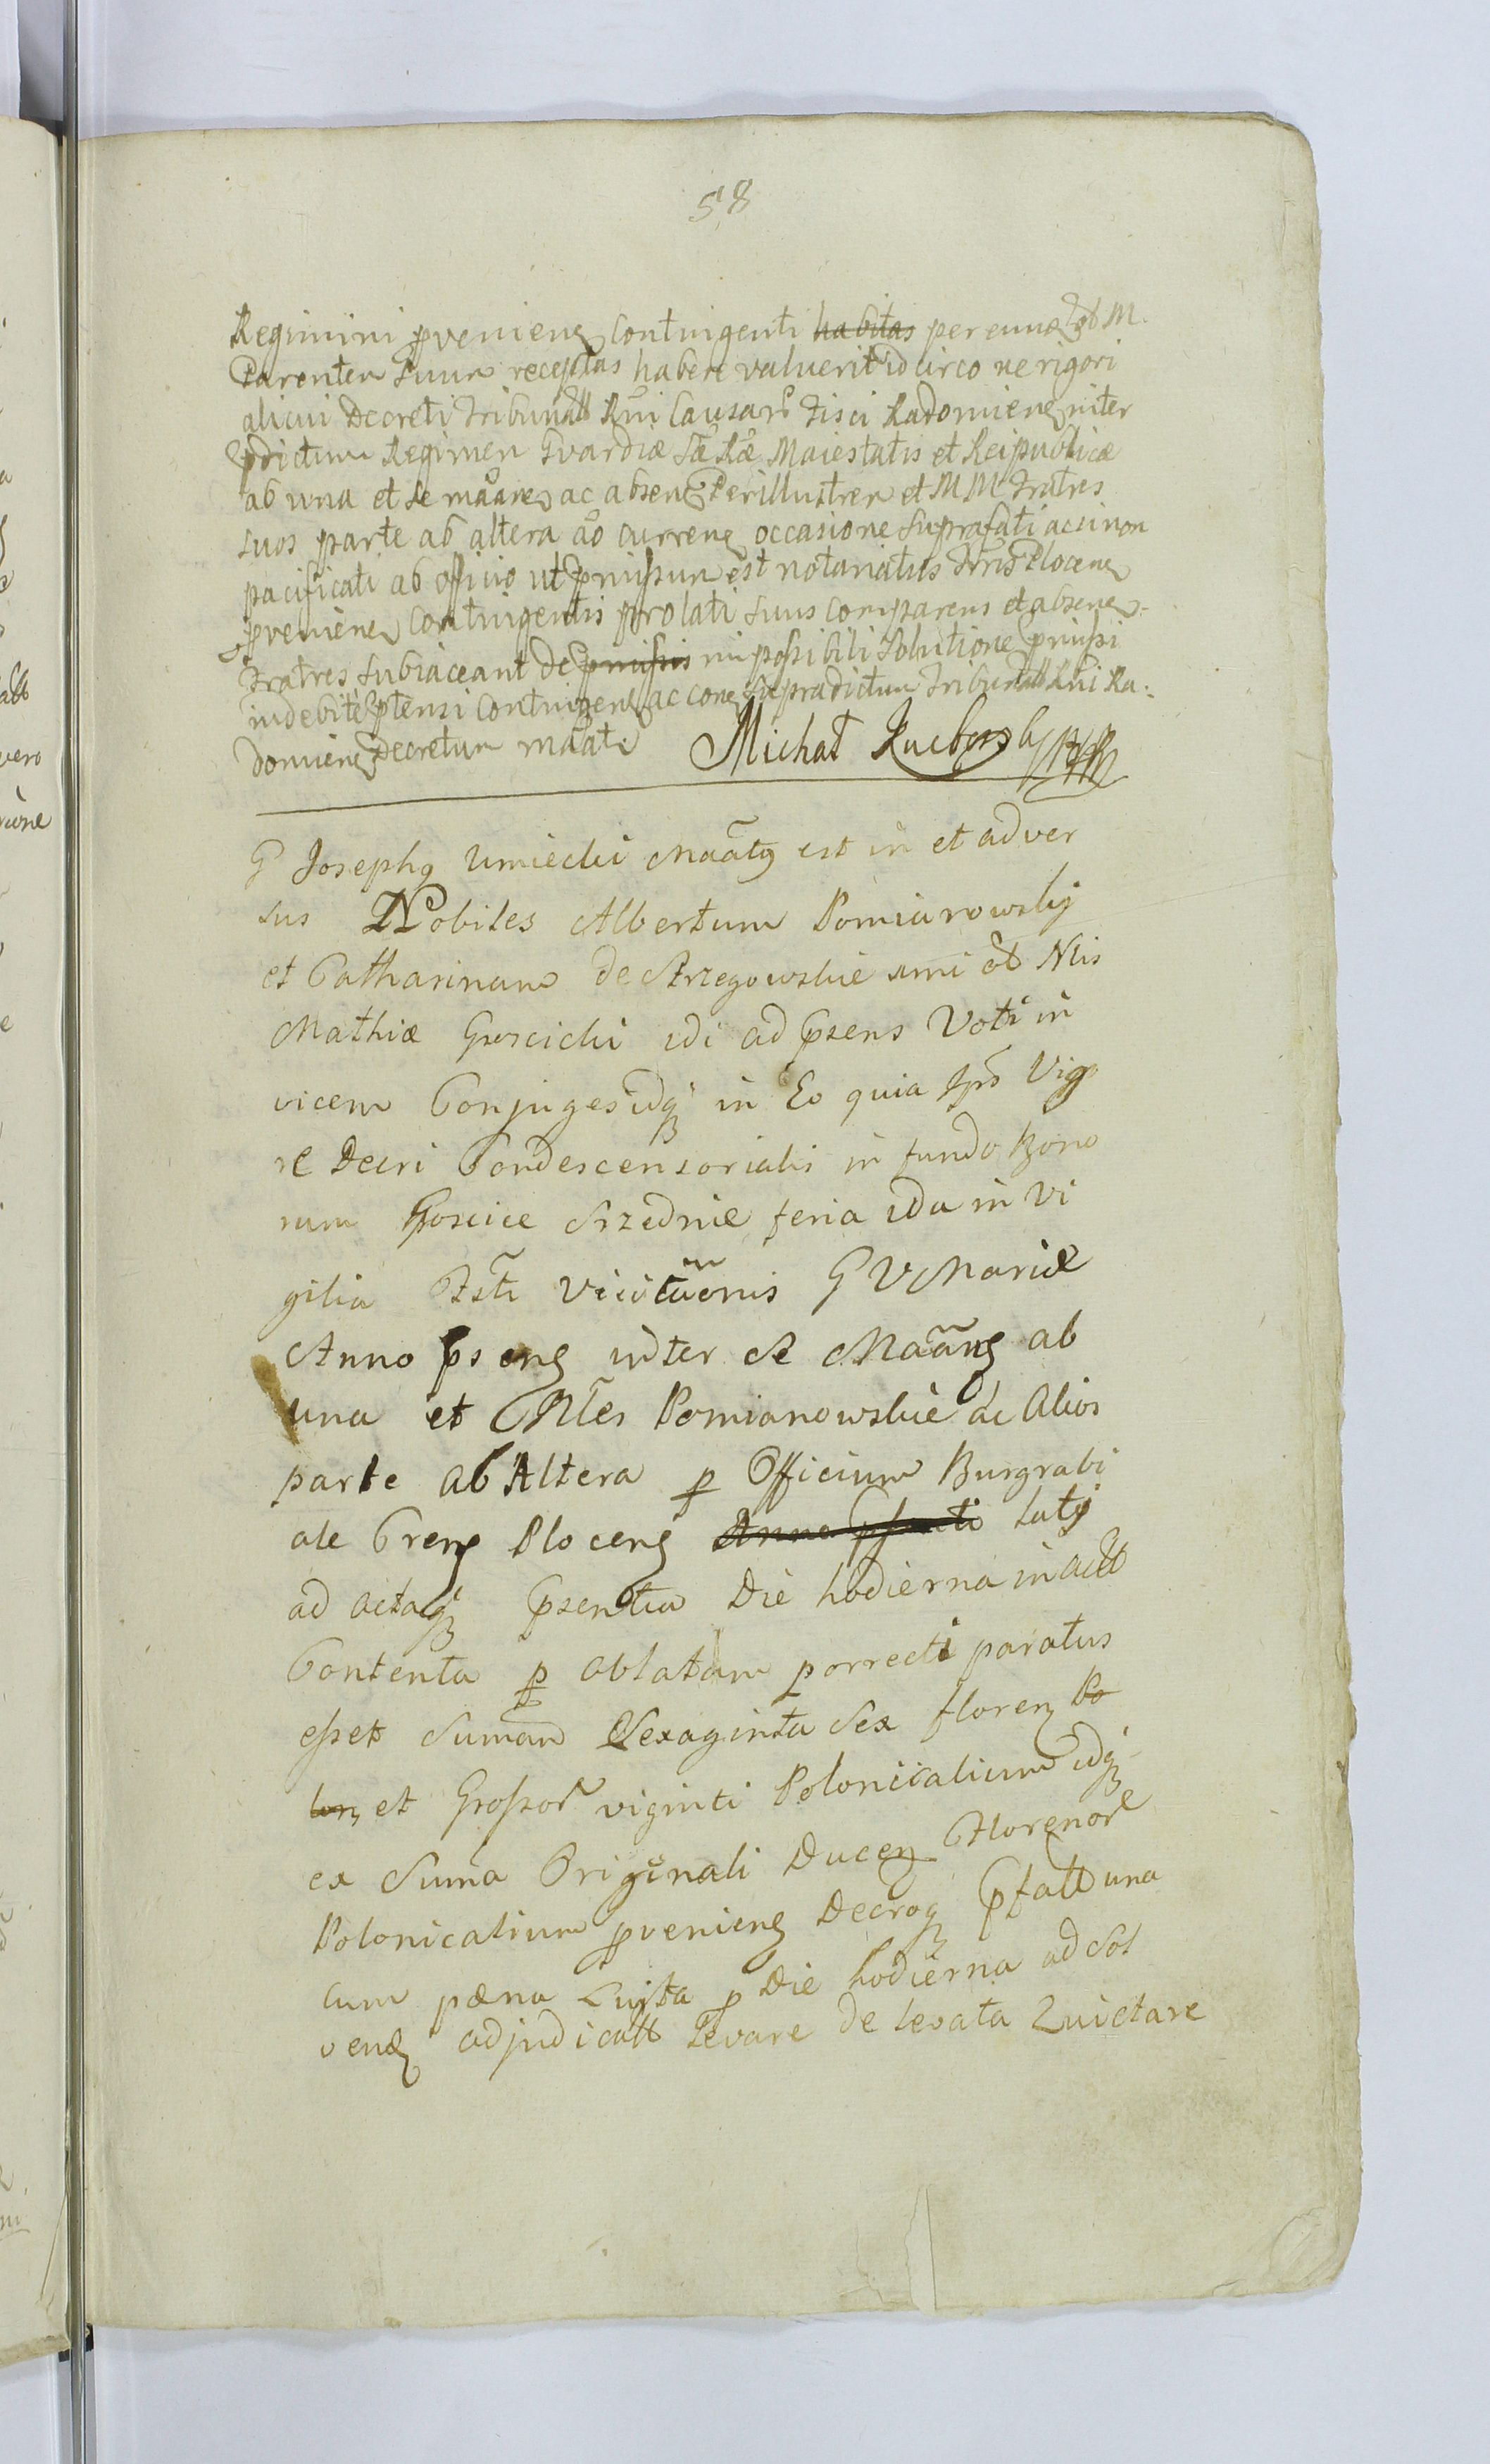 58
Regimini pveniens contingenti habitas per eundẽ olim M.
Parentem suum receptas habere valuerit idcirco ne rigori
alicui Decreti Tribunałł Rni Causarũ Fisci Radomiens inter
pdictum Regimen Gvardiæ Sæ Ræ Maiestatis et Reipublicæ
ab una et se mãane ac absen Perillustrem et MM Fratres
suos parte ab altera ão currens occasione suprafati ac si non
pacificati ab officio ut pmissum est notariatus Plocens
pveniens contingentis prolati suus comparens et absens
Fratres subiaceant de pmissis impossibili solutione pmissi
indebite ptensi contingens ac cone supradictum Tribunałł Rni Ra-
domiens Decretum mãati Michał
G Josephg Umiecki Mãatg est in et adver
sus Nobiles Albertum Pomianowsky
et Catharinam de Strzegowskie ơlim Nlis
Mathiæ Goscicki 2di ad psens Voti in
vicem Conjuges idq in Eo quia Ips Vigo
re Decri Condescensorialis in fundo Bono
rum Goscice Srzednie feria 2da in Vi
gilia Fsti Visitãonis G V Mariæ
Anno psens inter se Mãans ab
una et Nles Pomianowskie ac Alios
parte ab Altera p Officium Burgrabi
ale Crens Plocens Anno psenti latg
ad actaq psentia Die hodierna in actt
Contenta p oblatam porrecti paratus
esset Sumam Sexaginta Sex floren Po
lon et Grossor viginti Polonicalium idq
ex Suma Originali Ducen Florenor
Polonicalium pveniens Decroq pfałł una
cum pæna Luita p Die hodierna ad Sol
vend adjudicałł Levare de levata Quictare